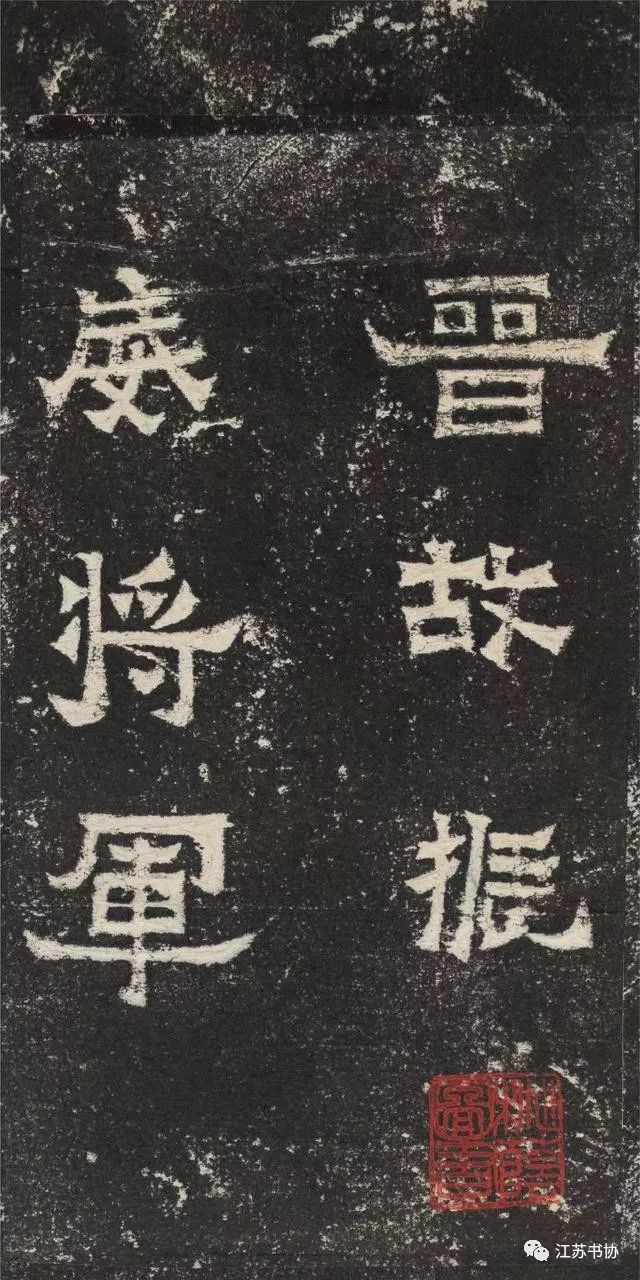 晉故振
威将軍
江苏书协